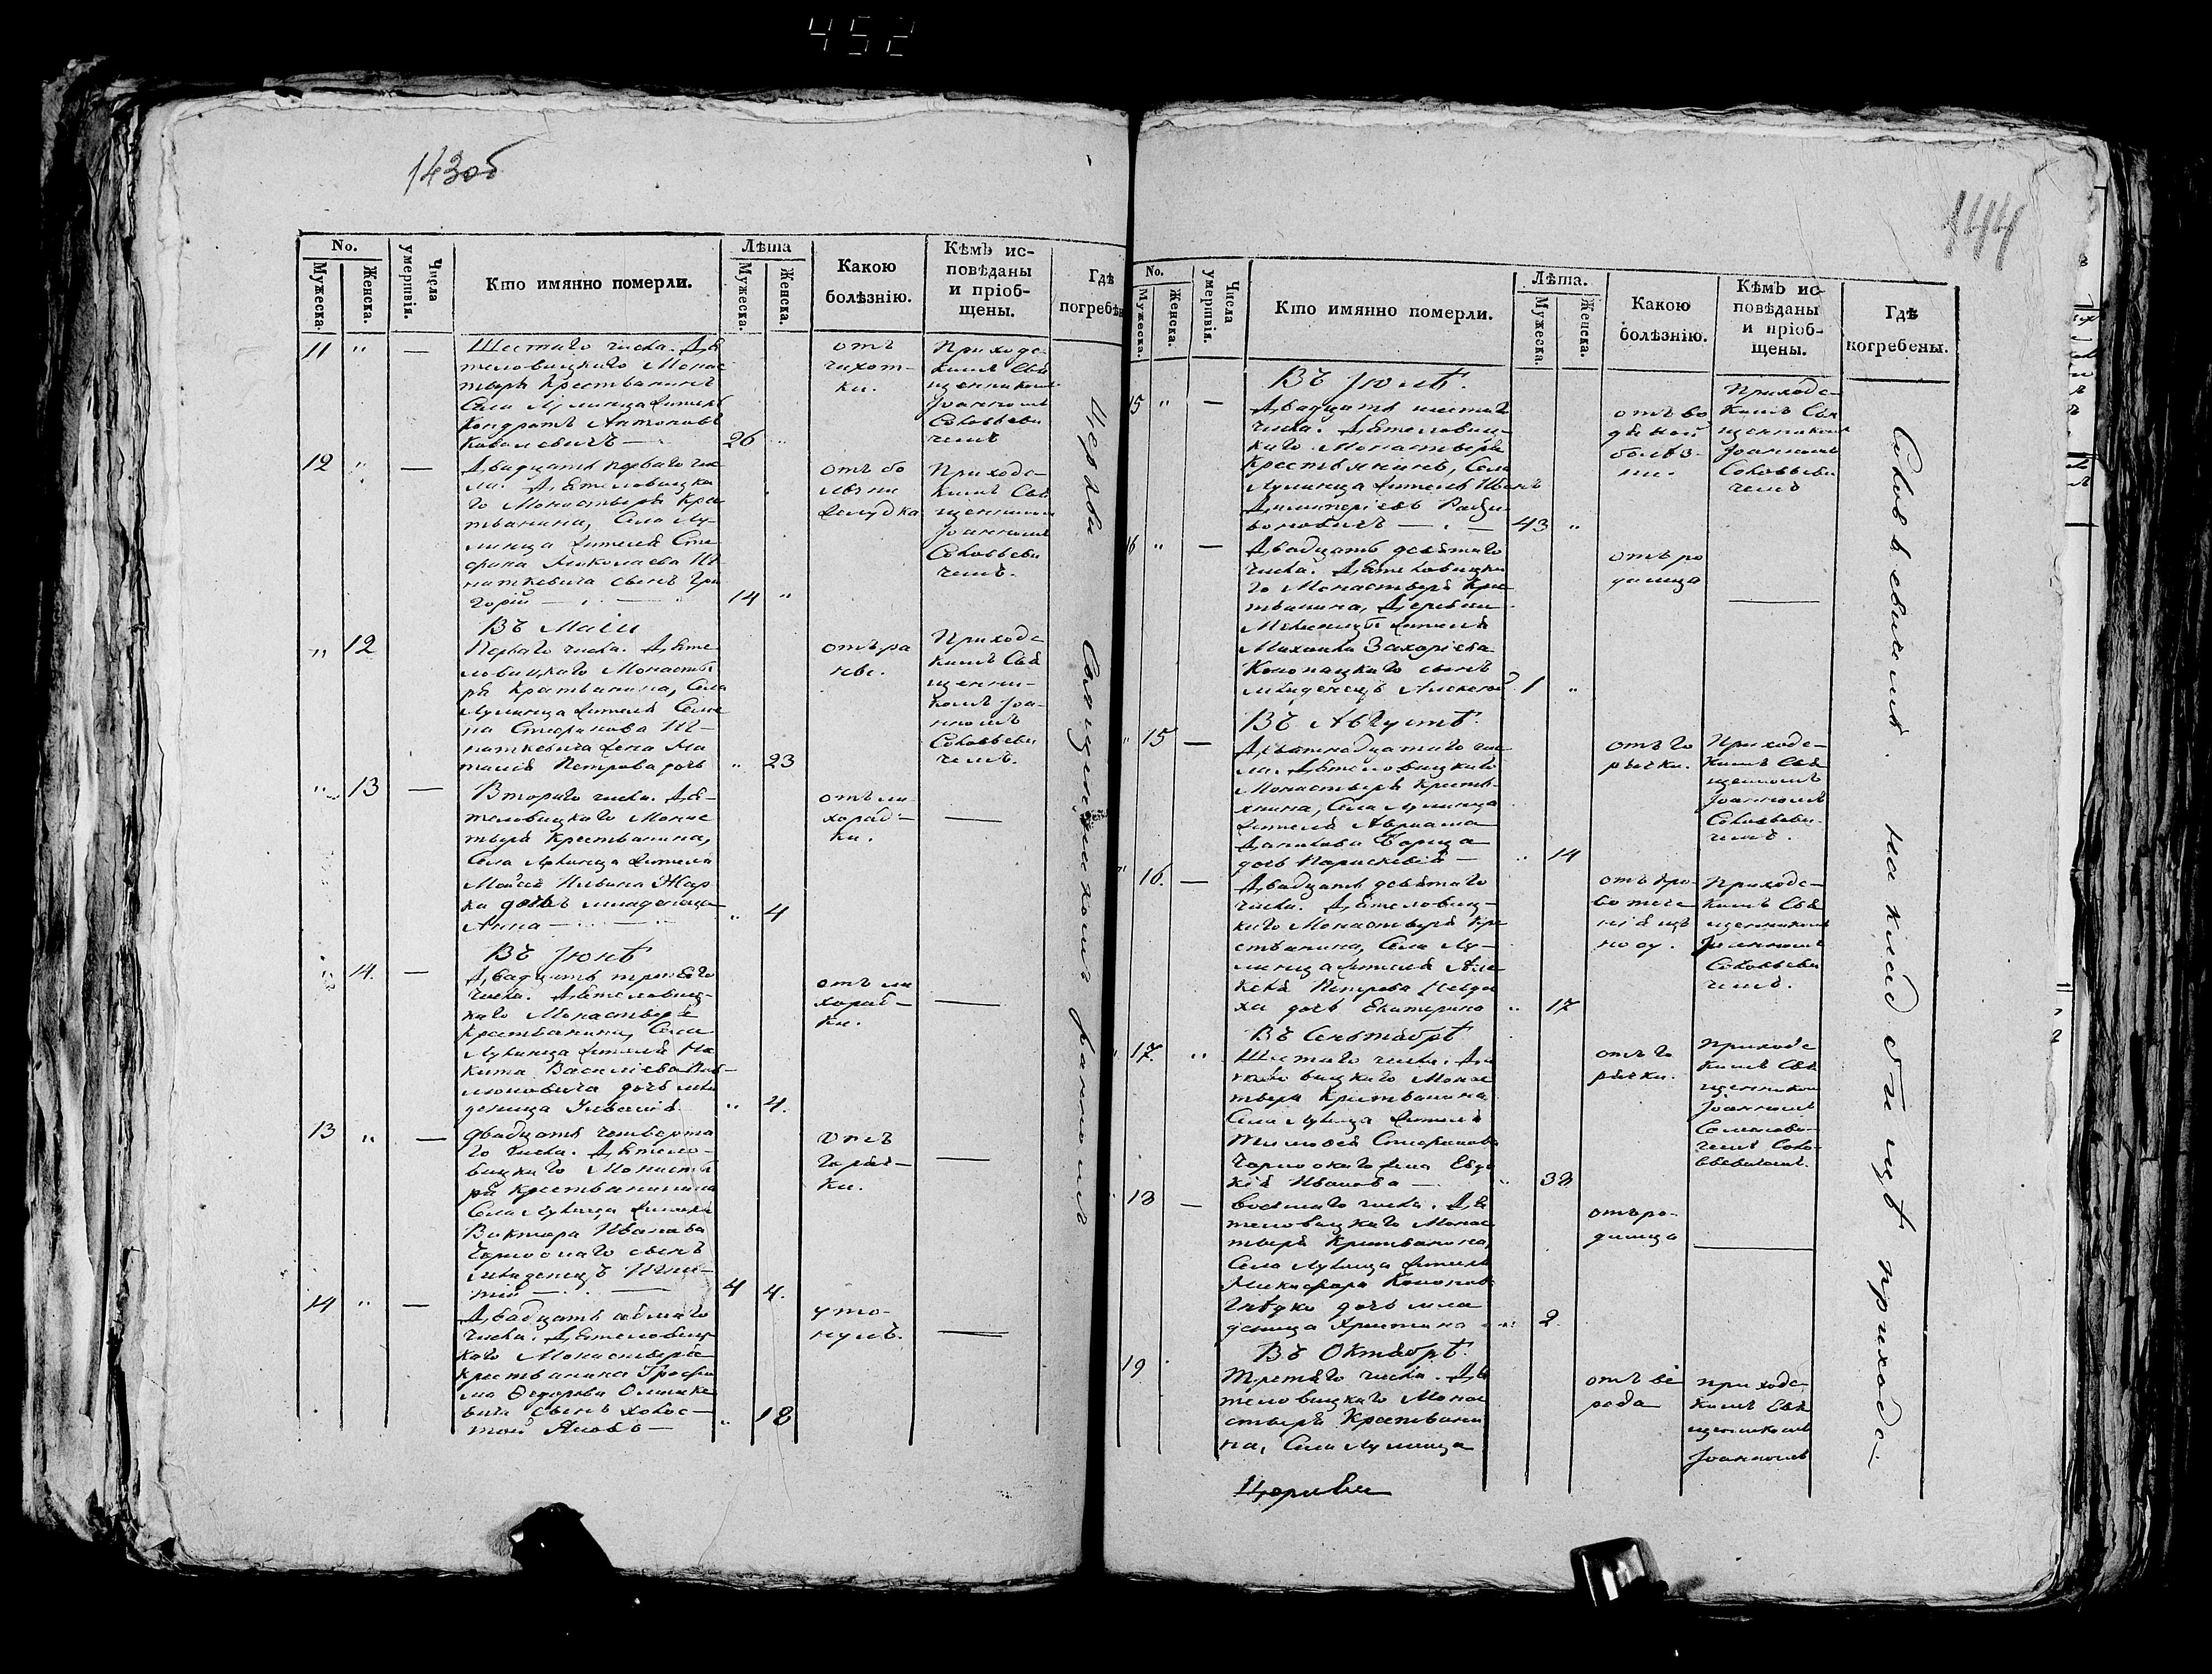 452
143об
No.
Мужеска.
Женска.
Числа умертвія.
Кто имянно померли.
Лѣта
Мужеска.
Женска.
Какою
болѣзнію.
Кѣмъ ис-
повѣданы
и пріоб-
щены.
Гдѣ
погребѣн
11 " — Шестаго числа. Дя
теловицкаго Монас
тыря Крестьянинъ
Села Лулинца житель
Кондратъ Антоновъ
Ковалевичъ — 26 "
отъ
чихот-
ки.
Приходс-
кимъ Свя
щенникомъ
Іоанномъ
Соловьеви
чемъ
12 " — Двадцать перваго чис
ла. Дятеловицка
го Монастыря Крес
тьянина, Села Лу-
линца жителя Сте
фана Николаева Иг
наткевича сынъ Гри
горій — 14 "
отъ бо
лѣзни
желудка
Приходс-
кимъ Свя
щенником
Іоанномъ
Соловьеви
чемъ.
Въ Маіи
" 12 Перваго числа. Дяте
ловицкаго Монасты
ря Крестьянина, Села
Лулинца жителя Семе
на Стефанова Иг-
наткевича жена На
талія Петрова дочь " 23
отъ ра
ны.
Приходс
кимъ Свя
щенни-
комъ Іоа-
нномъ
Соловьеви
чемъ.
" 13 — Втораго числа. Дя-
теловицкаго Монас
тыря Крестьянина,
Села Лулинца жителя
Моисея Ильина Жар
ка дочь младеница
Анна — " 4
отъ ли-
хорад-
ки.
—
Въ Іюнѣ
" 14. — Двадцать третьяго
числа. Дятеловиц-
каго Монастыря
Крестьянина, Села
Лулинца жителя Ни
кита Василіева
дочь мла
деница Уліанія " 4.
отъ ли
хорад-
ки.
—
13 " — двадцать четверта
го числа. Дятело-
вицкаго Монасты
ря Крестьянина
Села Лулинца жителя
Виктора Иванова
сынъ
младенецъ Игна-
тій — 4 4.
отъ
горяч-
ки.
—
14 " — Двадцать седмаго
числа. Дятеловиц
каго Монастыря
Крестьянина Трофи
ма Федорова
вича сынъ холос-
той Яковъ — " 18
уто-
нулъ.
—
Церкви Священникомъ Іоанномъ
144
No.
Мужеска.
Женска.
Числа умертвія.
Кто имянно померли.
Лѣта.
Мужеска.
Женска.
Какою
болѣзнію.
Кѣмъ ис-
повѣданы
и пріоб-
щены.
Гдѣ
погребены.
Въ Іюлѣ.
15 " — Двадцать шестаго
числа. Дятеловиц-
каго Монастыря
Крестьянинъ, Села
Лулинца житель Иванъ
Димитріевъ Ради
воновичъ — 43 "
отъ во
дяной
болѣз-
ни.
Приходс-
кимъ Свя
щенникомъ
Іоанномъ
Соловьеви
чемъ
16 " — Двадцать девятаго
числа. Дятеловицка
го Монастыря Крес
тьянина, Деревни
жителя
Михаила Захаріева
Колонацкаго сынъ
младенецъ Алексей 1 "
отъ ро
димца
—
Въ Августѣ.
" 15 — Двенадцатаго чис
ла. Дятеловицкаго
Монастыря Кресть-
янина, Села Лулинца
жителя Авраама
Данилова
дочь Параскевія — " 14
отъ го
рячки.
Приходс-
кимъ Свя
щенномъ
Іоанномъ
Соловьеви-
чемъ.
" 16. — Двадцать девятаго
числа. Дятеловиц-
каго Монастыря Кре
стьянина, Села Лу-
линца жителя Але
ксѣя Петрова
ха дочь Екатерина " 17
отъ кро-
вотече
нія изъ
носу.
Приходс-
кимъ Свя
щенникомъ
Іоанномъ
Соловьеви
чемъ.
Въ Сентябрѣ
" 17. " Шестаго числа. Дя
теловицкаго Монас
тыря Крестьянина
Села Лулинца жителя
Тимофея Стефанова
жена Евдо
кія Иванова — " 38
отъ го
рячки.
Приходс
кимъ Свя
щенникомъ
Іоанномъ
Соло-
вьевичемъ.
18 — Восьмаго числа. Дя
теловицкаго Монас
тыря Крестьянина,
Села Лулинца жителя
Никифора Кононова
дочь мла
деница Христина " 2.
отъ ро-
димца
—
Въ Октябрѣ.
19 Третяго числа. Дя
теловицкаго Монас
стыря Крестьяни
на, Села Лулинца
отъ ве
реда
приходс-
кимъ Свя
щеникомъ
Іоанномъ
Соловьевичемъ. на кладбищѣ приходс-
Церкви